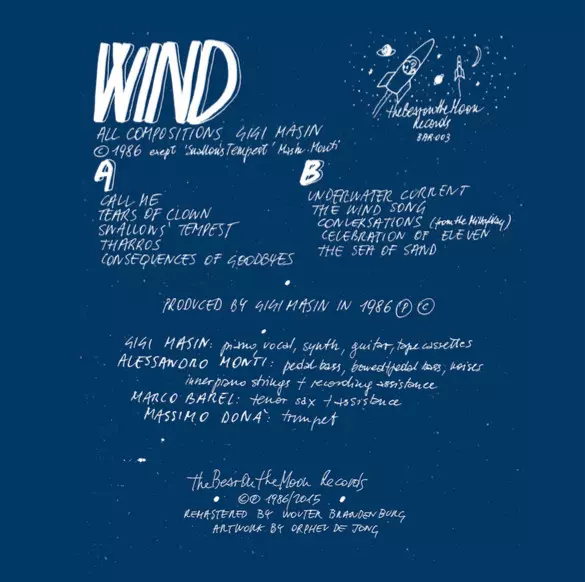 WIND
theBearOnTheMoon
Records
BAR-003
ALL COMPOSITIONS GIGI MASIN
© 1986 exept 'Swallows' Tempest' Masin-Monti
A
CALL ME
TEARS OF CLOWN
SWALLOWS' TEMPEST
THARROS
CONSEQUENCES OF GOODBYES
B
UNDERWATER CURRENT
THE WIND SONG
CONVERSATIONS (from the MilkyWay)
CELEBRATION OF ELEVEN
THE SEA OF SAND
PRODUCED BY GIGI MASIN IN 1986 ℗ ©
GIGI MASIN: piano vocal, synth, guitar, tape cassettes
ALESSANDRO MONTI: pedal bass, bowed/pedal bass, noises
inner piano strings + recording assistence
MARCO BAREL: tenor sax + assistence
MASSIMO DONÀ: trumpet
theBearOnTheMoon Records
©℗ 1986/2015
REMASTERED BY WOUTER BRANDENBURG
ARTWORK BY ORPHEU DE JONG